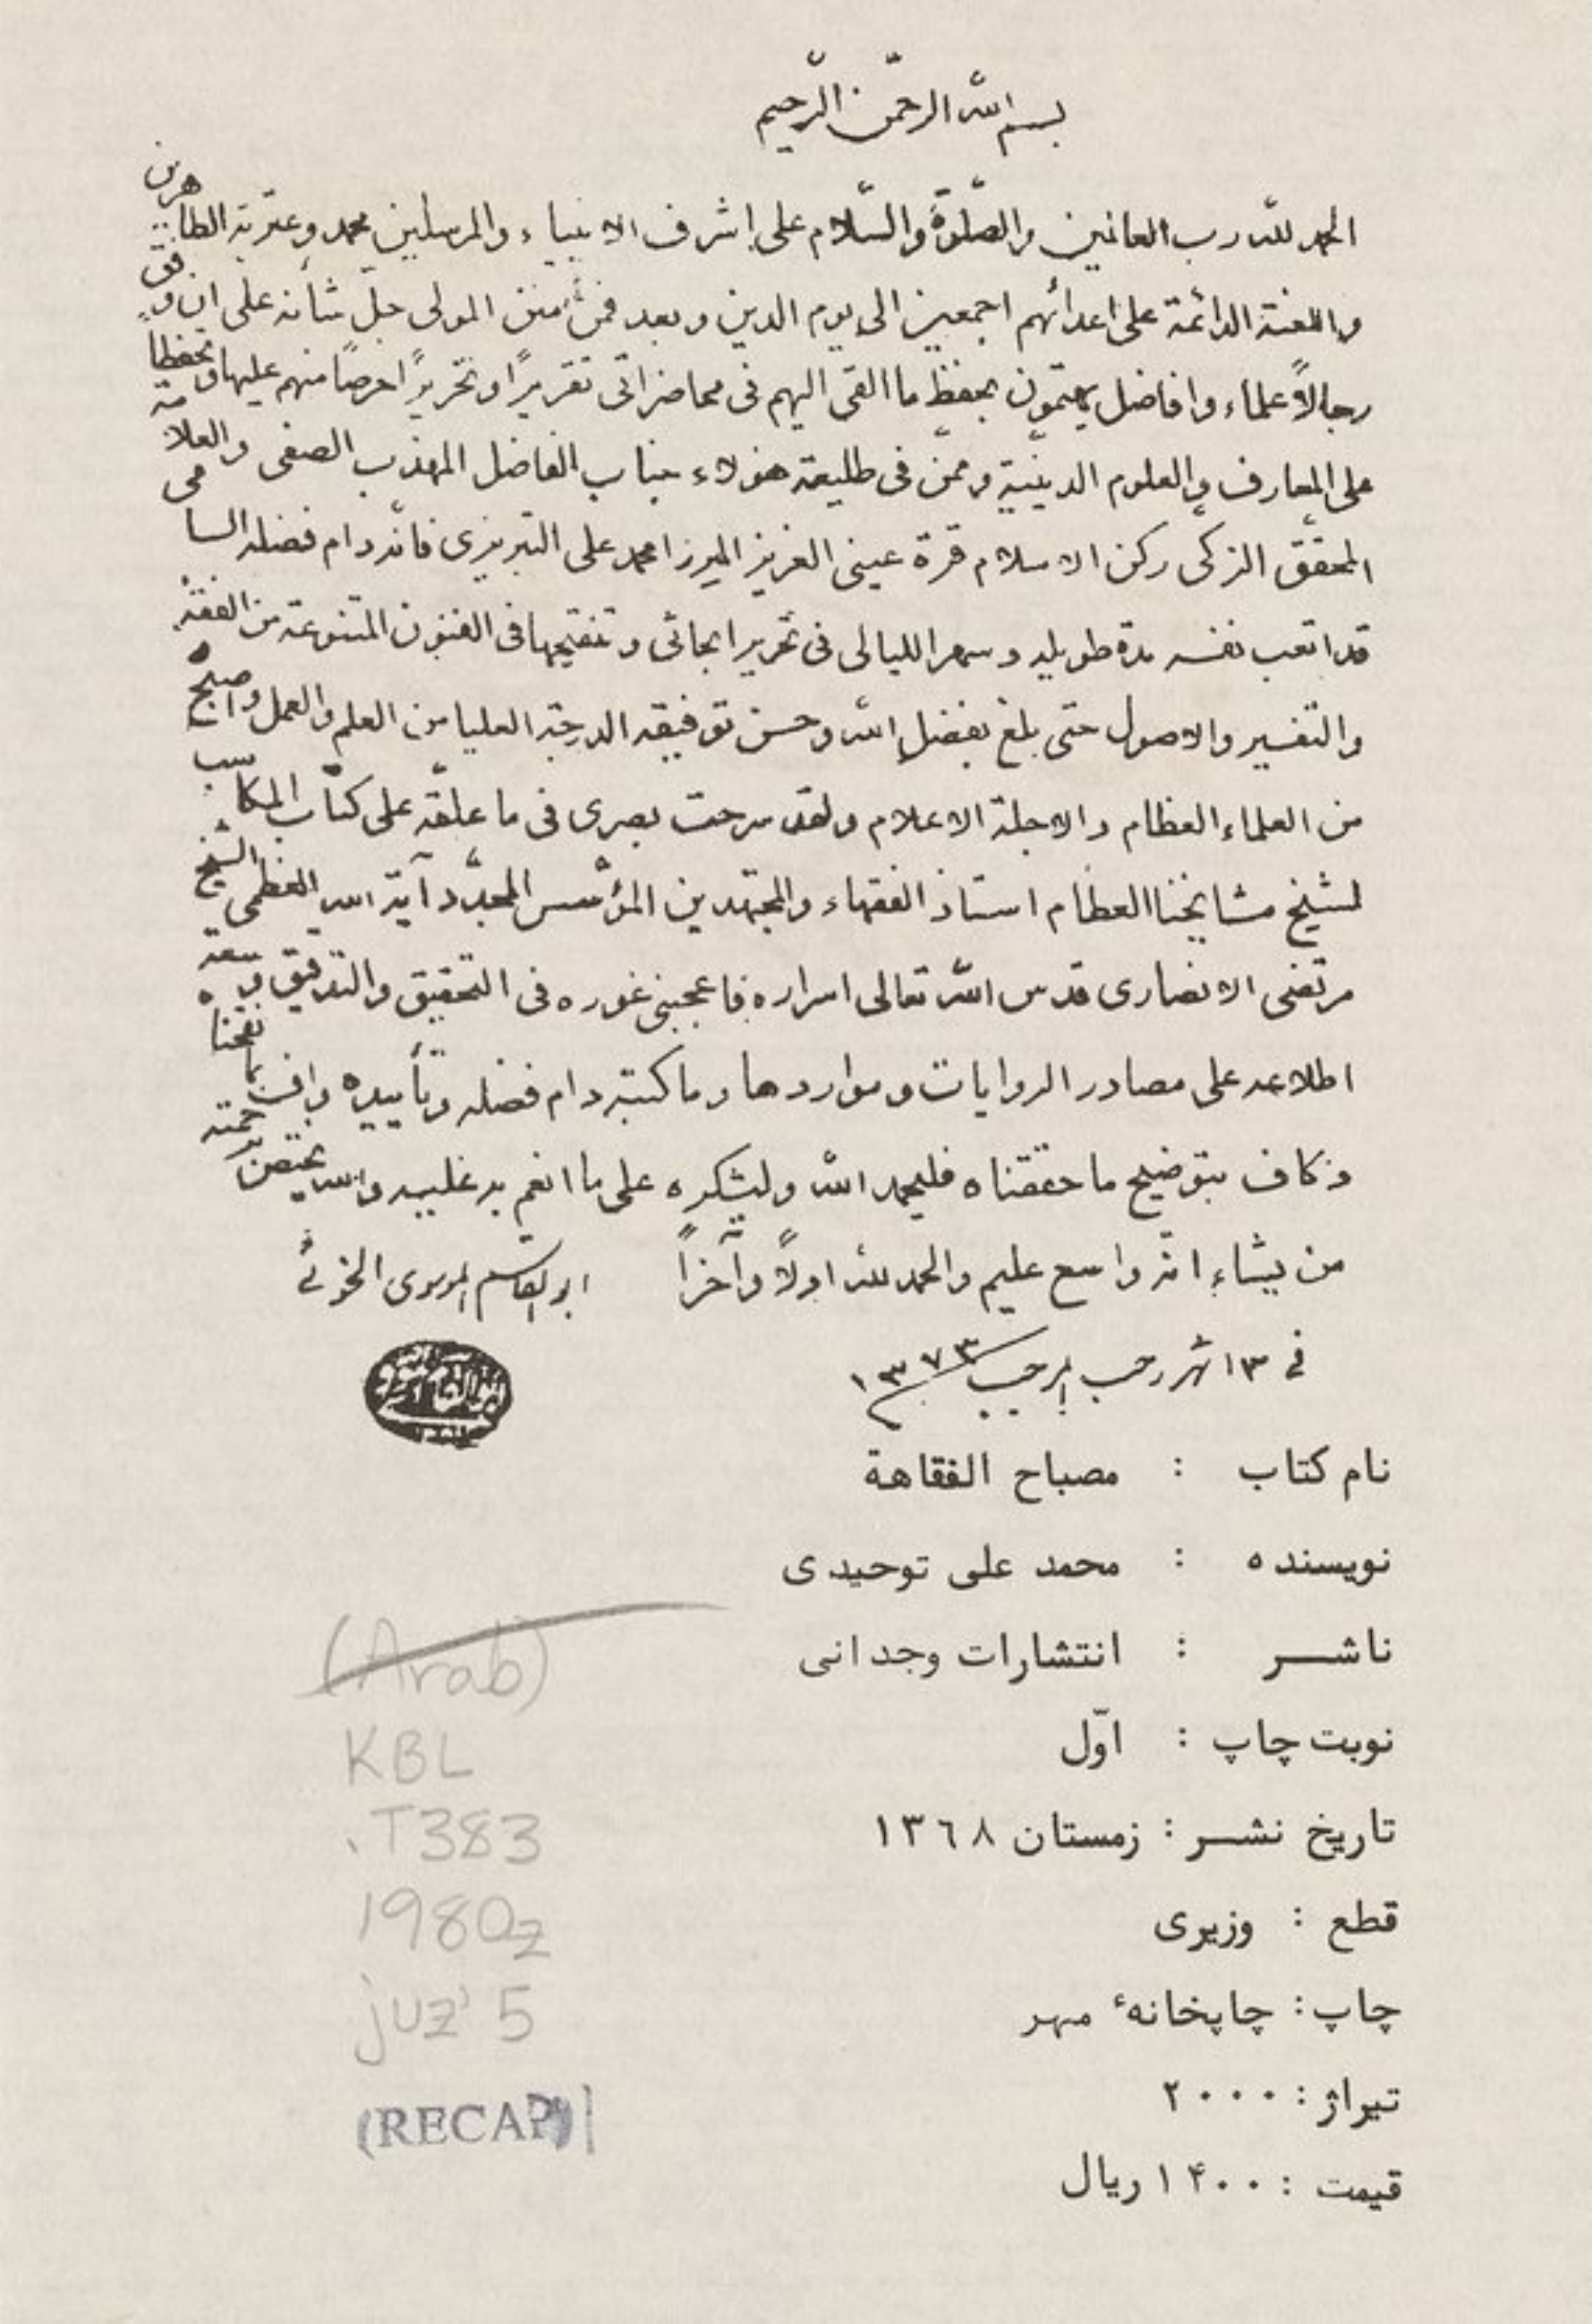 بسم الله الرحمن الرحيم
الحمد لله رب العالمين والصلوة والسلام على اشرف الانبياء والمرسلين محمد وعترته الطاهرين
واللعنة الدائمة على اعدائهم اجمعين الى يوم الدين وبعد فمن منن المولى جل شأنه على ان وفق
رجالاً علماء وافاضل يهتمون بحفظ ما القى اليهم في محاضراتي تقريراً وتحريراً حرصاً منهم عليها وتحفظاً
على المعارف والعلوم الدينية وممن في طليعة هؤلاء جناب الفاضل المهذب الصفي والعلامة
المحقق الزكى ركن الاسلام قرة عيني العزيز الميرزا محمد على التبريزى فانه دام فضله السامى
قد اتعب نفسه مدة طويله وسهر الليالى فى تحرير ابحاثى وتنقيحها فى الفنون المتنوعة من الفقه
والتفسير والاصول حتى بلغ بفضل الله وحسن توفيقه الدرجة العليا من العلم والعمل واصبح
من العلماء العظام والاجلة الاعلام ولقد سرحت بصرى فى ما علقه على كتاب المكاسب
لشيخ مشايخنا العظام استاذ الفقهاء والمجتهدين المؤسس المجدد آية الله العظمى الشيخ
مرتضى الانصارى قدس الله تعالى اسراره فاعجبنى غوره فى التحقيق والتدقيق وسعة
اطلاعه على مصادر الروايات ومواردها وما كتبه دام فضله وتأييده واف بما نقحناه
وكاف بتوضيح ما حققناه فليحمد الله وليشكره على ما انعم به عليه والله يختص برحمته
من يشاء انه واسع عليم والحمد لله اولاً وآخراً ابو القاسم الموسوى الخوئى
فى ١٣ شهر رجب المرجب ١٣٧٣
نام كتاب : مصباح الفقاهة
نويسنده : محمد على توحيدى
ناشر : انتشارات وجدانى
نوبت چاپ : اوّل
تاريخ نشر : زمستان ١٣٦٨
قطع : وزيرى
چاپ : چاپخانهٔ مهر
تيراژ : ٢٠٠٠
قيمت : ١۴٠٠ ريال
(Arab)
KBL
.T383
1980z
juz' 5
(RECAP)